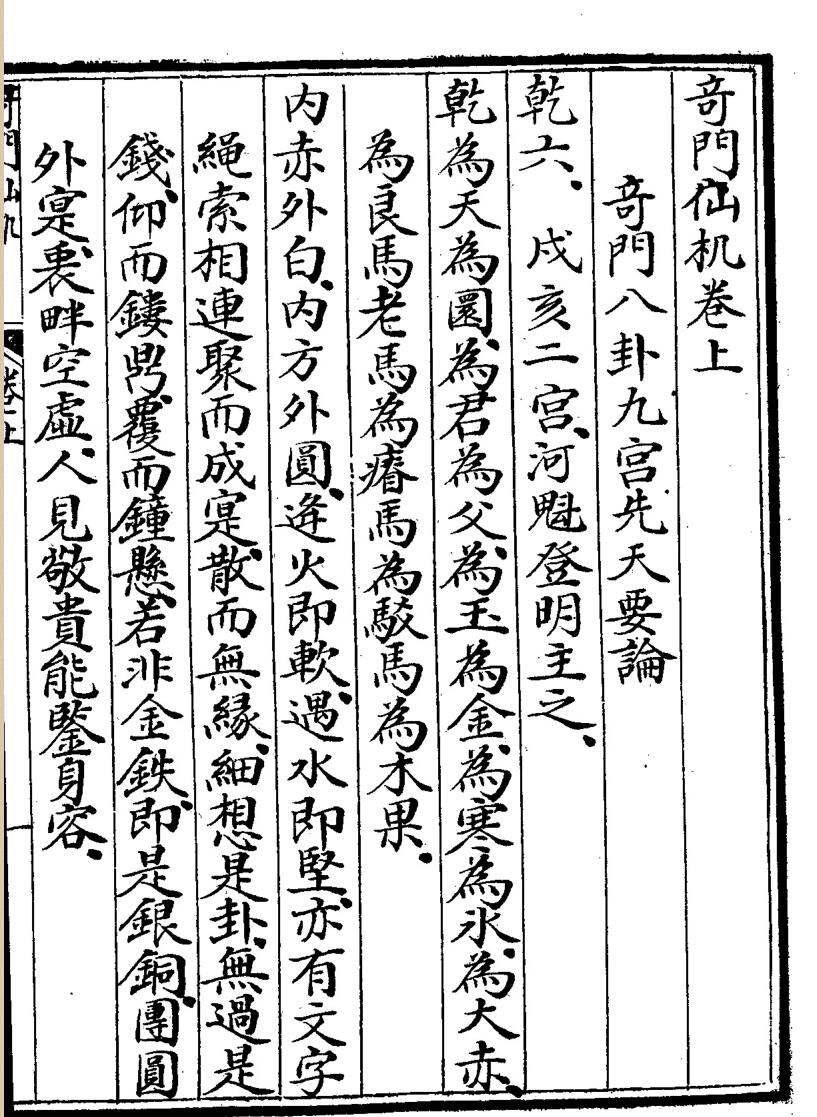 奇門仙机卷上
奇門八卦九宮先天要論
乾六、戌亥二宮、河魁登明主之、
乾為天為圜、為君為父、為玉為金、為寒為氷、為大赤、
為良馬老馬為瘠馬為駁馬為木果、
内赤外白、内方外圓、逄火即軟、遇水即堅、亦有文字
繩索相連聚而成寔、散而無緣、細想是卦、無過是
錢、仰而鏤鼎、覆而鐘懸、若非金鉄、即是銀銅、團圓
外寔、裏畔空虛、人見敬貴能鑒身容、
奇門仙机 卷上 一